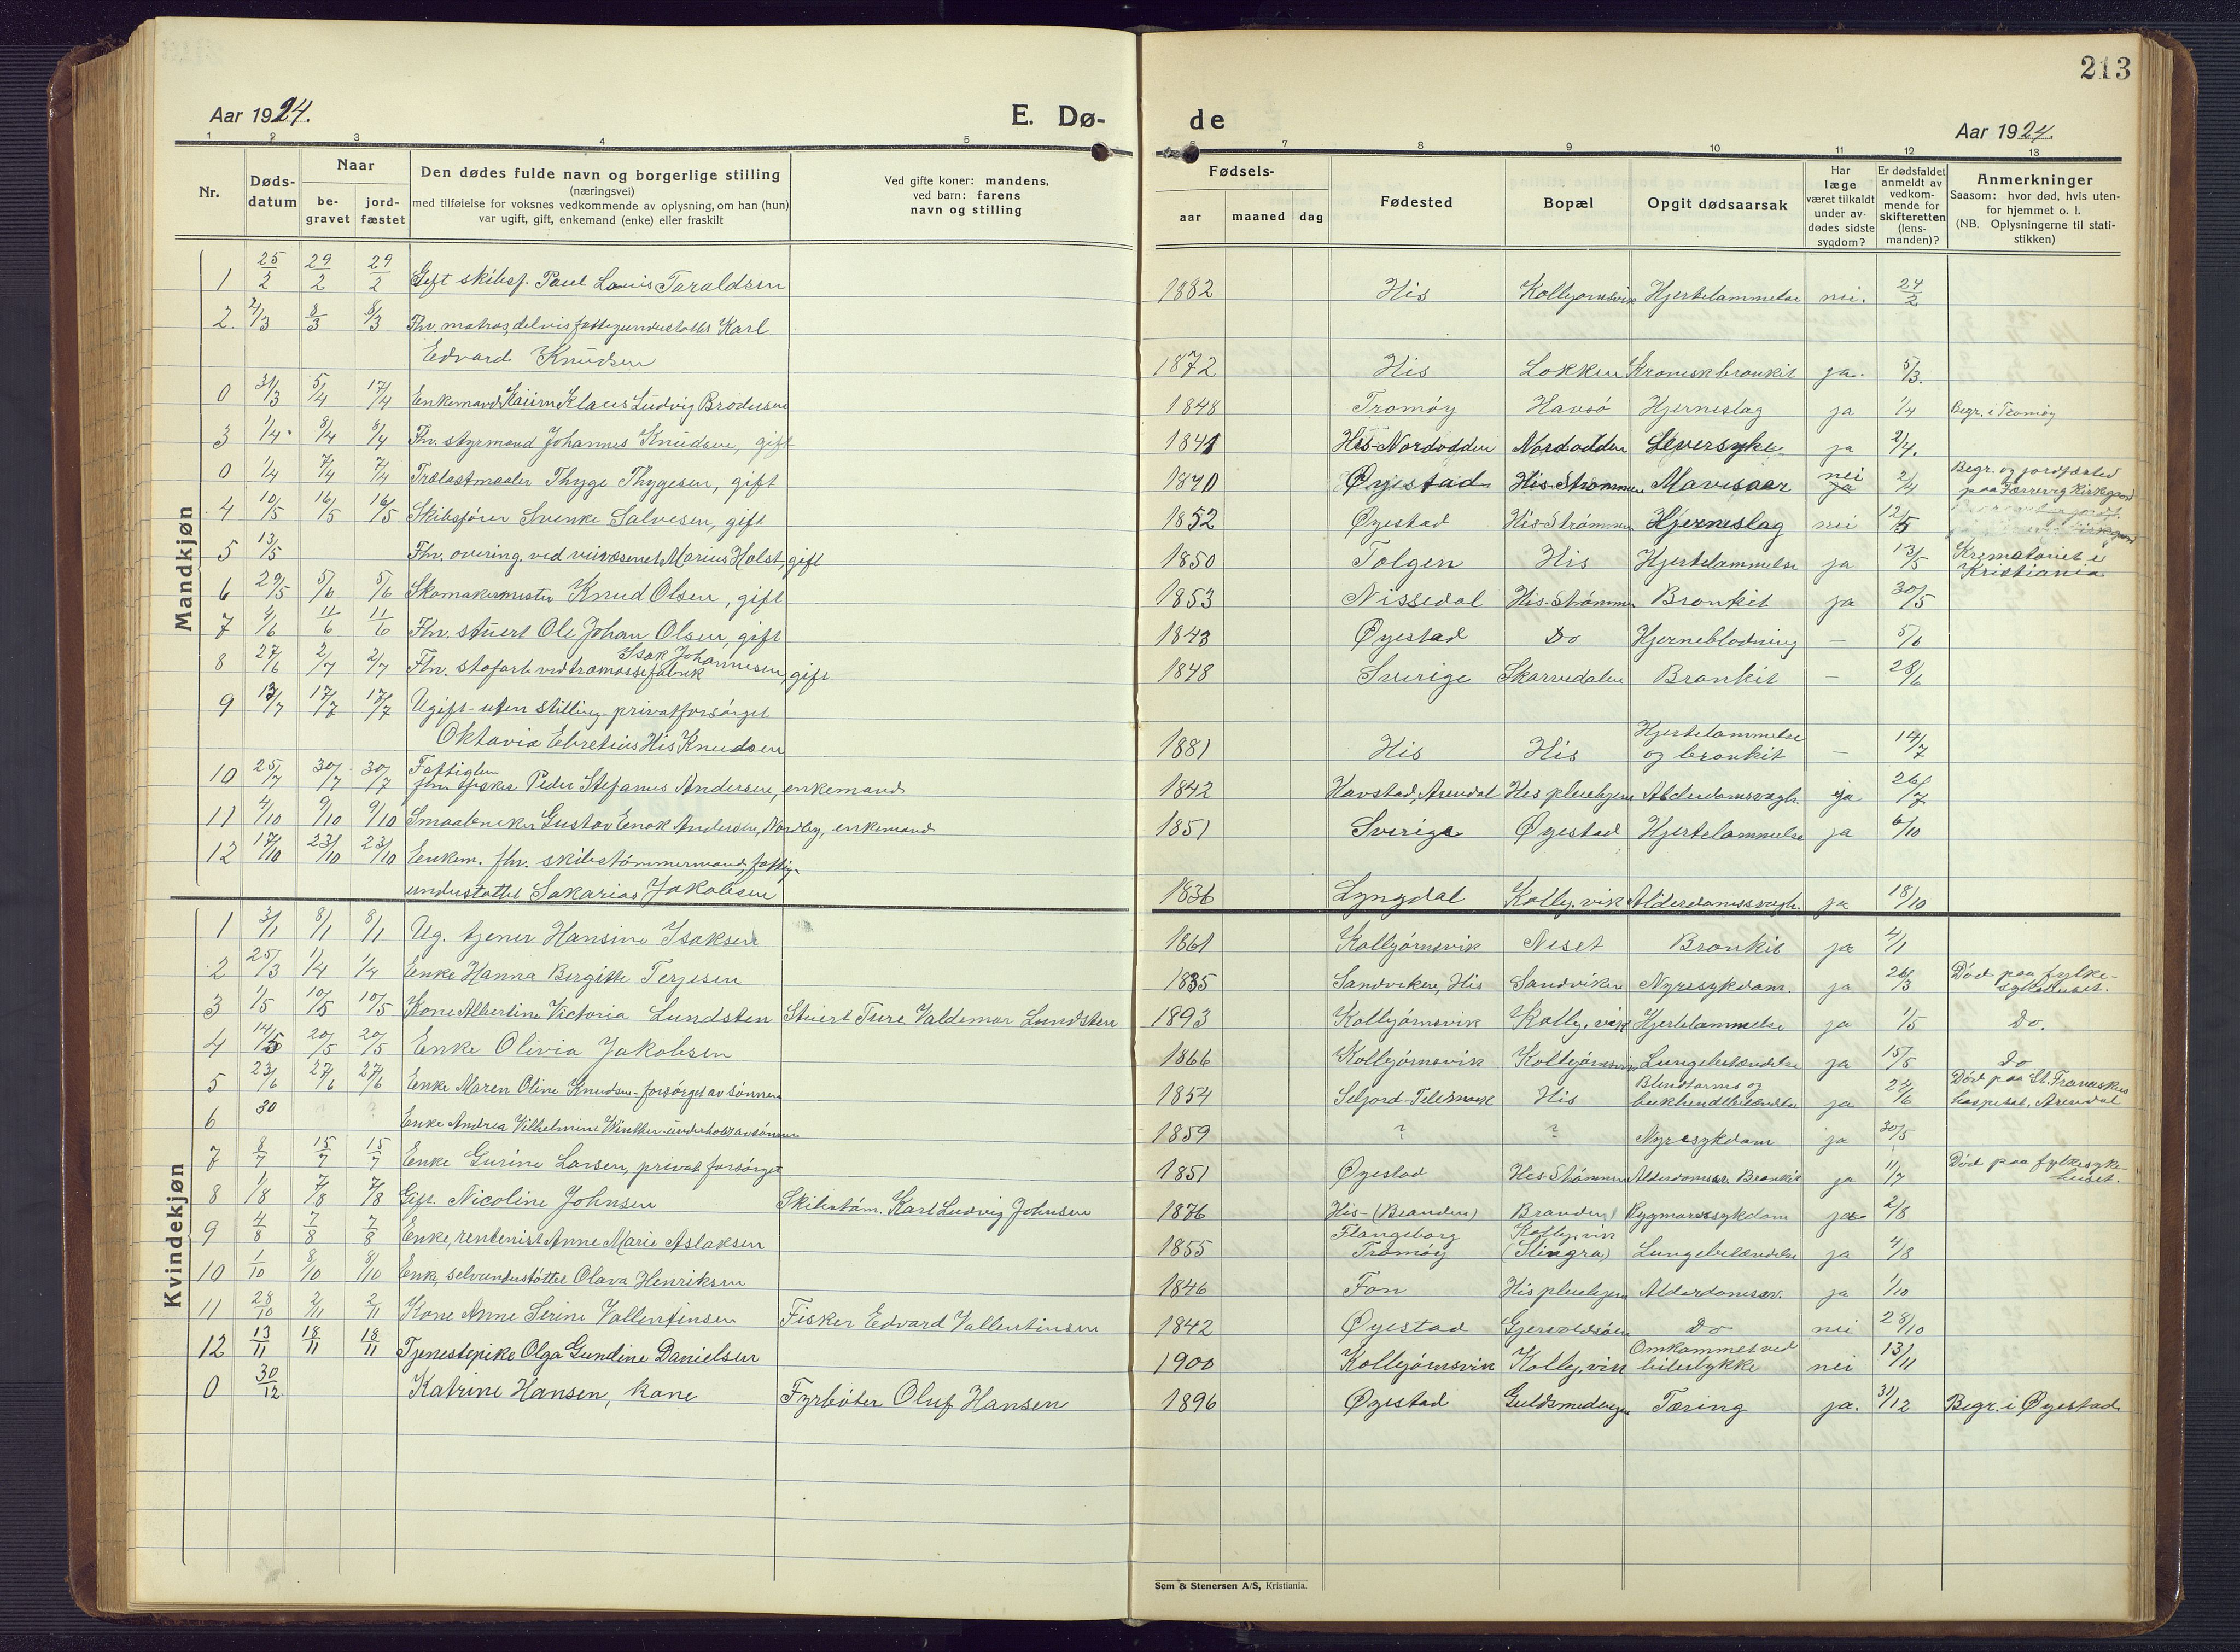 213
Aar 1924.
E. Dø-
de
Aar 1924.
1 2 3 4 5 6 7 8 9 10 11 12 13
Nr.
Døds-
datum
Naar
be-
gravet
jord-
fæstet
Den dødes fulde navn og borgerlige stilling
(næringsvei)
med tilføielse for voksnes vedkommende av oplysning, om han (hun)
var ugift, gift, enkemand (enke) eller fraskilt
Ved gifte koner: mandens,
ved barn: farens
navn og stilling
Fødsels-
aar maaned dag
Fødested
Bopæl
Opgit dødsaarsak
Har
læge
været tilkaldt
under av-
dødes sidste
sygdom?
Er dødsfaldet
anmeldt av
vedkom-
mende for
skifteretten
(lens-
manden)?
Anmerkninger
Saasom: hvor død, hvis uten-
for hjemmet o. l.
(NB. Oplysningerne til stati-
stikken)
Mandkjøn
1 25/2 29/2 29/2 Gift skibsf. Paul Louis Taraldsen 1882 His Hjertelammelse nei. 24/2
2. 2/3 8/3 8/3 Fhv. matros, delvis fattigunderstøttet Karl
Edvard Knudsen 1872 His Løkken Kronisk bronkit ja. 5/3.
0 31/3 5/4 17/4 Enkemand Klaus Ludvig Brodersen 1848 Tromøy Havsö Hjerneslag ja 1/4 Begr. i Tromøy
3 1/4. 8/4 8/4 Fhv. styrmand Johannes Knudsen, gift 1841 His-Nordodden Nordodden Leversyke ja 2/4.
0 1/4 7/4 7/4 Trælastmaaler Thyge Thygesen, gift 1840 Øyestad His-Strømmen Mavesaar nei ja 2/4 Begr. og jordfæsted
paa Færrevig kirkegaard
4 10/5 16/5 16/5 Skibsfører Svenke Salvesen, gift 1852 Øyestad His-Strømmen Hjerneslag nei 12/5
5 13/5 Fhv. overing. ved veivæsenet Marius Holst, gift 1850 Tolgen His Hjertelammelse ja 13/5 Krematoriet i
Kristiania
6 29/5 5/6 5/6 Skomakermester Knud Olsen, gift 1853 Nissedal His-Strømmen Bronkit ja 30/5
7 4/6 11/6 11/6 Fhv. stuert Ole Johan Olsen, gift 1843 Øyestad Do Hjerneblødning — 5/6
8 27/6 2/7 2/7 Fhv. ved træmassefabrik Isak Johannesen, gift 1848 Sverige Skarvedalen Bronkit — 28/6
9 13/7 17/7 17/7 Ugift - uten stilling - privatforsörget
Oktavia Ebretius His Knudsen 1881 His His Hjertelammelse
og bronkit — 14/7
10 25/7 30/7 30/7 Fattiglem
fhv. fisker Peder Stefanus Andersen, enkemand 1842 Havstad, Arendal His pleiehjem Alderdomssvagh. ja 26/7
11 4/10 9/10 9/10 Smaabruker Gustav Enok Andersen, Nordby, enkemand 1851 Sverige Øyestad Hjertelammelse ja 6/10
12 17/10 23/10 23/10 Enkem. fhv. skibstömmermand, fattig-
understøttet Sakarias Jakobsen 1836 Lyngdal Kolbj. vik Alderdomssvagh. ja 18/10
Kvindekjøn
1 3/1 8/1 8/1 Ug. tjener Hansine Isaksen 1861 Kolbjörnsvik Neset Bronkit ja 4/1
2 25/3 1/4 1/4 Enke Hanna Birgitte Terjesen 1835 Sandviken, His Sandviken Nyresykdom. ja 26/3 Död paa fylke-
sykehuset.
3 1/5 10/5 10/5 Kone Albertine Victoria Lundsten Stuert Ture Valdemar Lundsten 1893 Kolbjörnsvik Kolbj. vik Hjertelammelse ja 1/5 Do.
4 14/5 20/5 20/5 Enke Olivia Jakobsen 1866 Kolbjörnsvik Kolbjörnsvik Lungebetændelse ja 15/5 Do
5 23/6 27/6 27/6 Enke Maren Oline Knudsen - forsörget av sönnen 1854 Seljord - Telemark His Blindtarms og
bukhindebetændelse ja 24/6 Död paa St. Franciskus
hospital, Arendal
6 30 Enke Andrea Vilhelmine Winther underholdt av sönnen 1859 ? ? Nyresykdom ja 30/5
7 8/7 15/7 15/7 Enke Gurine Larsen, privat forsörget 1851 Øyestad His-Strömmen Alderdomssv. Bronkit ja 11/7 Död paa fylkesyke-
huset.
8 1/8 7/8 7/8 Gift. Nicoline Johnsen Skibstöm. Karl Ludvig Johnsen 1876 His - (Branden) Branden Rygmarvssykdom ja 2/8
9 4/8 7/8 7/8 Enke, rentenist Anne Marie Aslaksen 1855 Flangeborg
Tromöy Kolbj. vik
(Slingra) Lungebetændelse ja 4/8
10 1/10 8/10 8/10 Enke, selvunderstöttet Olava Henriksen 1846 Fon His pleiehjem Alderdomssv. ja 1/10
11 28/10 2/11 2/11 Kone Anne Serine Vallentinsen Fisker Edvard Vallentinsen 1842 Øyestad Gjervoldsöen Do nei 28/10
12 13/11 18/11 18/11 Tjenestepike Olga Gundine Danielsen 1900 Kolbjörnsvik Kolbj. vik Omkommet ved
bilulykke nei 13/11
0 30/12 Katrine Hansen, kone Fyrböter Oluf Hansen 1896 Øyestad Guldsmedengen Tæring ja. 31/12 Begr. i Øyestad.
Sem & Stenersen A/S, Kristiania.